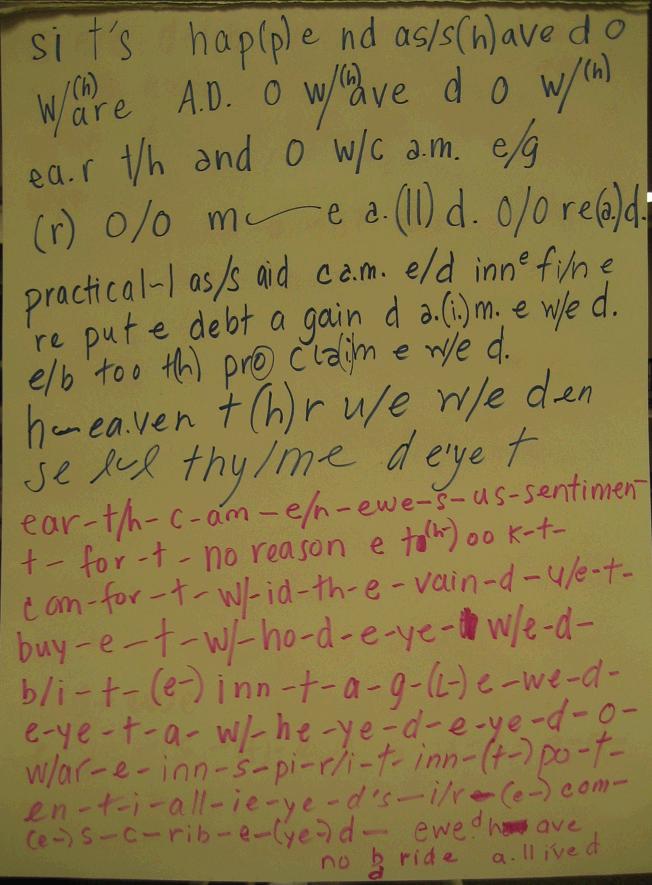 si t's hap(p)e nd as/s(h)ave d o
w/(h)are A.D. o w/(h)ave d o w/(h)
ea.r t/h and o w/c a.m. e/g
(r) o/o m e a.(ll) d. o/o re(a.)d.
practical-l as/s aid c a.m. e/d inn e fi/n e
re put e debt a gain d a.(i.)m. e w/e d.
e/b too t(h) pro c la(i)m e w/e d.
h-ea.ven t(h)r u/e w/e d en
se lul thy/me d e'ye t
ear-t/h-c-am-e/n-ewe-s-us-sentimen-
t-for-t-no reason e to(h-)oo k-t-
com-for-t-w/-id-th-e-vain-d-u/e-t-
buy-e-t-w/-ho-d-e-ye- w/e-d-
b/i-t-(e-) inn-t-a-g-(L-)e-we-d-
e-ye-t-a-w/-he-ye-d-e-ye-d-o-
w/ar-e-inn-s-pi-r/i-t-inn-(t-)po-t-
en-t-i-all-ie-ye-d's-i/r-(e-)com-
(e-)s-c-rib-e-(ye-)d- ewe d h ave
no b/d ride a.ll ived